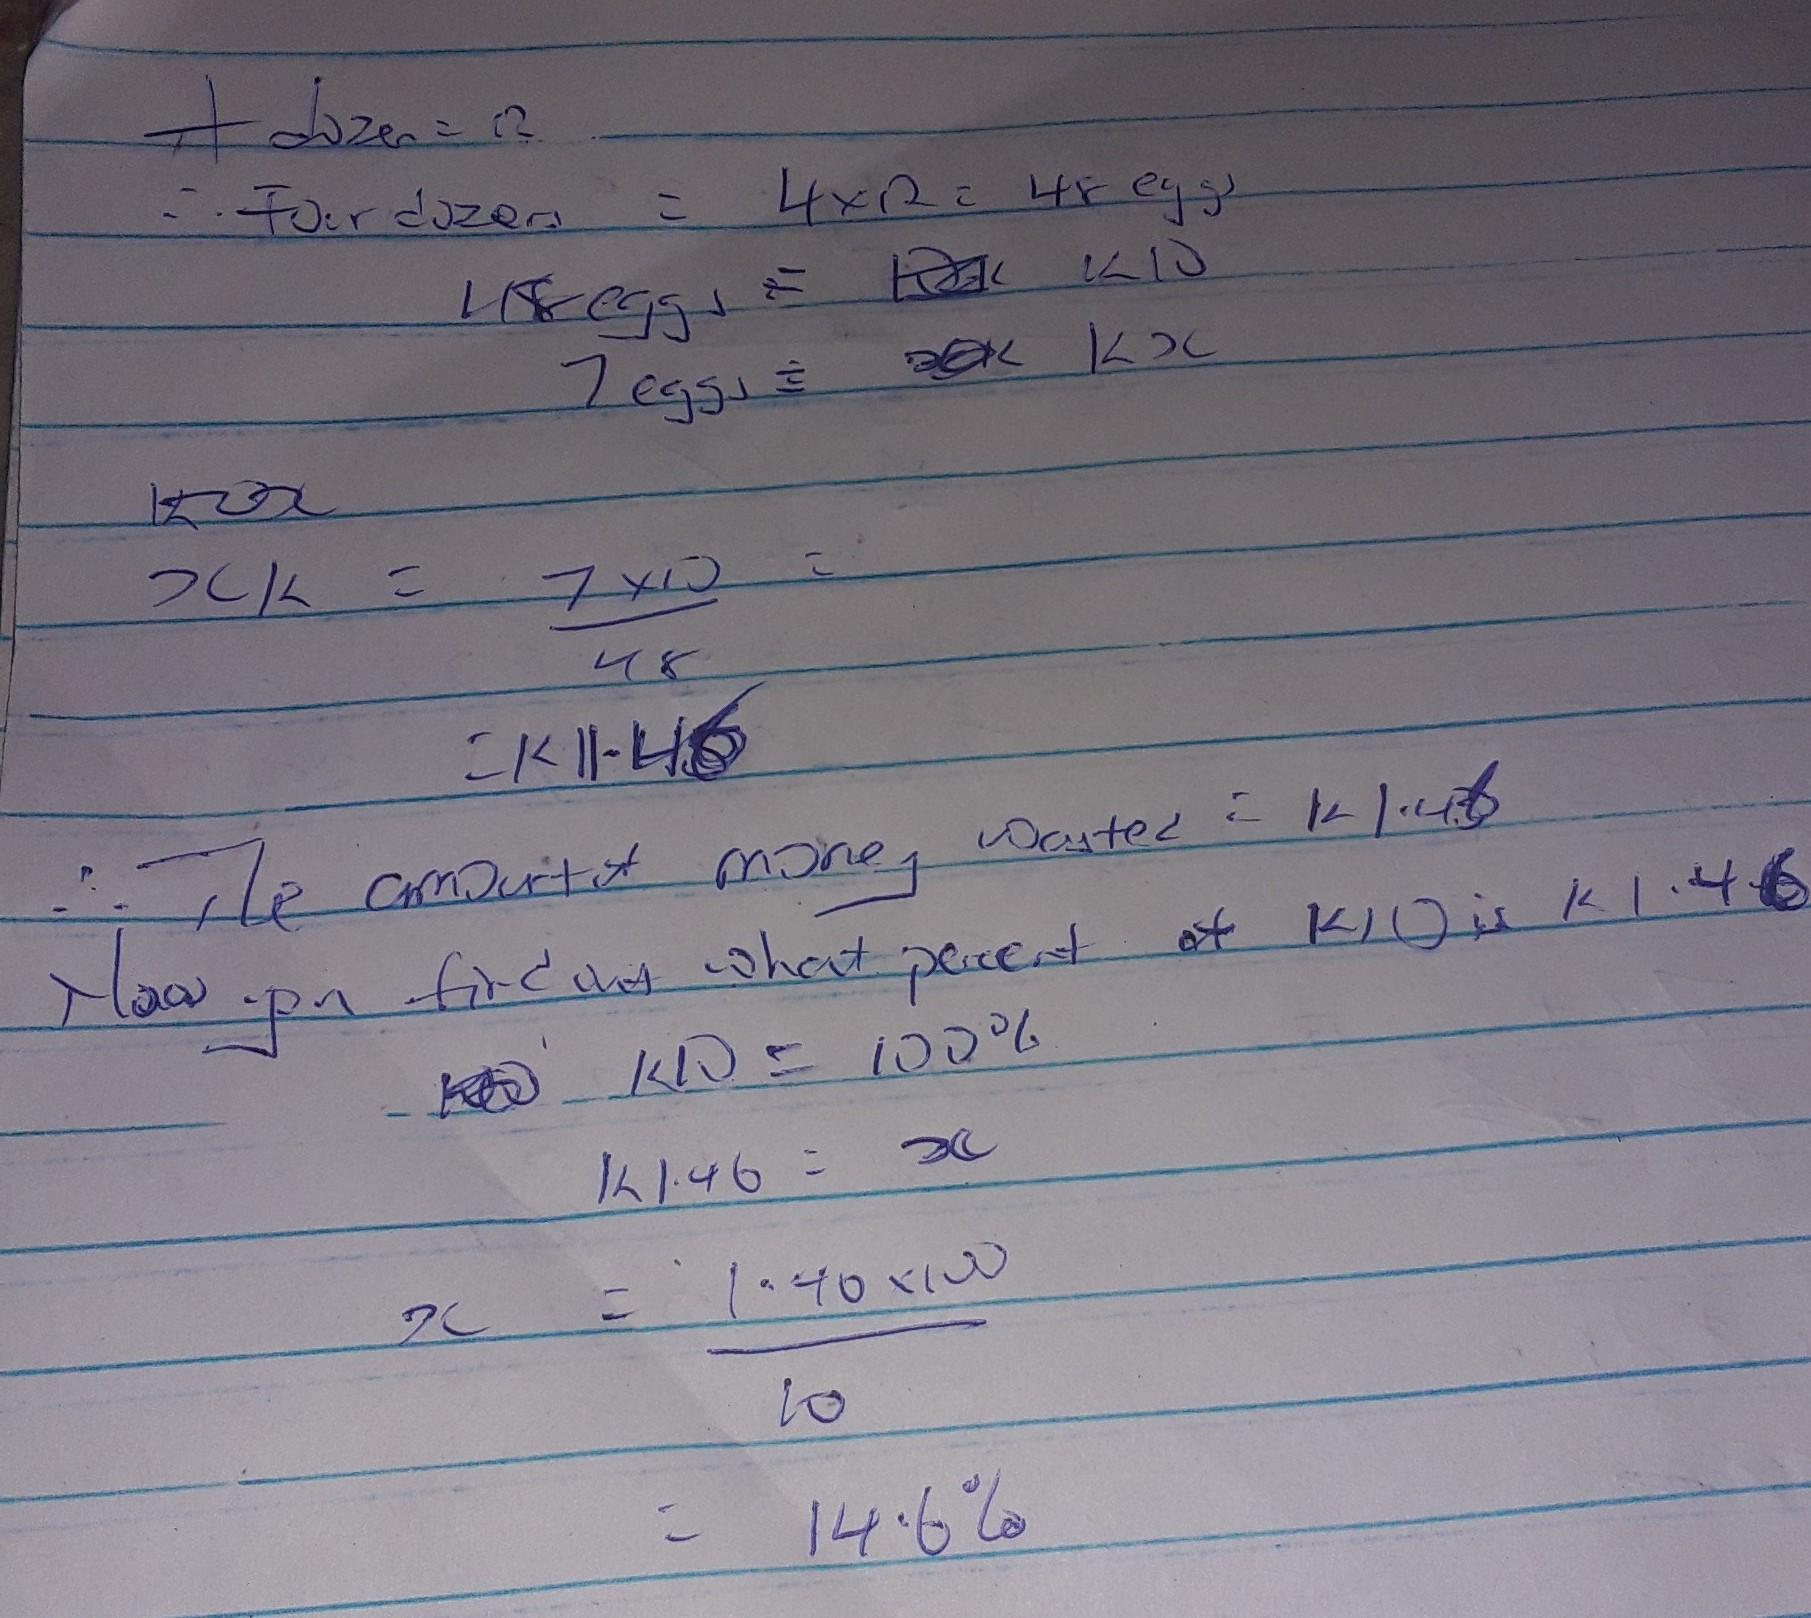 A dozen = 12
∴ Four dozens = 4x12 = 48 eggs
48 eggs = K10
7 eggs = Kx
xK = 7x10 =
48
= K11.46
∴ The amount of money wasted = K1.46
Now find out what percent of K10 is K1.46
K10 = 100%
K1.46 = x
x = 1.46 x100
10
= 14.6%